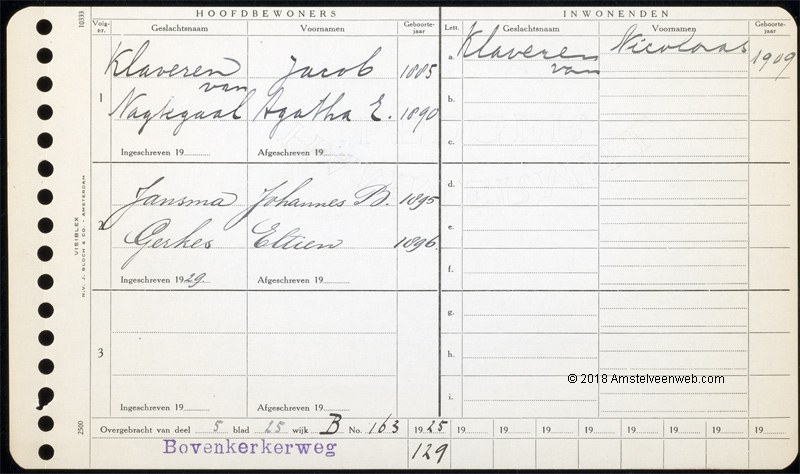 10333
HOOFDBEWONERS
INWONENDEN
Volg-nr.
Geslachtsnaam
Voornamen
Geboorte-jaar
Lett.
Geslachtsnaam
Voornamen
Geboorte-jaar
1
Klaveren van
Jacob
1885
Nagtegaal
Agatha E.
1890
Ingeschreven 19
Afgeschreven 19
a.
Klaveren van
Nicolaas
1909
b.
c.
2
Jansma
Johannes B.
1895
Gerkes
Eltien
1896
Ingeschreven 1929.
Afgeschreven 19
d.
e.
f.
3
Ingeschreven 19
Afgeschreven 19
g.
h.
i.
© 2018 Amstelveenweb.com
VISIBLEX
N.V. J. BLOCH & CO. / AMSTERDAM
2500
Overgebracht van deel 5 blad 25 wijk B No. 163
1925
19
19
19
19
19
19
19
19
Bovenkerkerweg
129